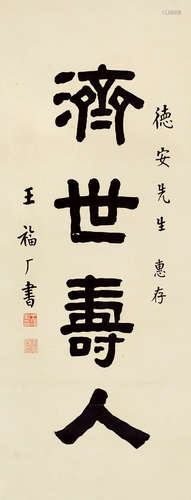 德安先生 惠存
濟世壽人
王福厂書